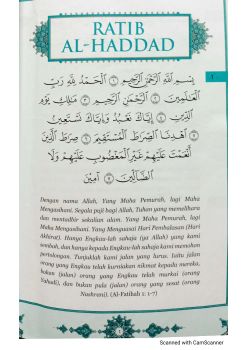 RATIB
AL-HADDAD
بِسْمِ اللَّهِ الرَّحْمَنِ الرَّحِيمِ ۝ الْحَمْدُ لِلَّهِ رَبِّ
الْعَالَمِينَ ۝ الرَّحْمَنِ الرَّحِيمِ ۝ مَالِكِ يَوْمِ
الدِّينِ ۝ إِيَّاكَ نَعْبُدُ وَإِيَّاكَ نَسْتَعِينُ
۝ اهْدِنَا الصِّرَاطَ الْمُسْتَقِيمَ ۝ صِرَاطَ الَّذِينَ
أَنْعَمْتَ عَلَيْهِمْ غَيْرِ الْمَغْضُوبِ عَلَيْهِمْ وَلَا
الضَّالِّينَ ۝ آمِينَ
Dengan nama Allah, Yang Maha Pemurah, lagi
Maha Mengasihani. Segala puji bagi Allah, Tuhan yang memelihara
dan mentadbir sekalian alam. Yang Maha Pemurah, lagi
Maha Mengasihani. Yang Menguasai Hari Pembalasan (Hari
Akhirat). Hanya Engkau-lah sahaja (ya Allah) yang kami
sembah, dan hanya kepada Engkau-lah sahaja kami memohon
pertolongan. Tunjukilah kami jalan yang lurus. Iaitu jalan
orang yang Engkau telah kurniakan nikmat kepada mereka,
bukan (jalan) orang yang Engkau telah murkai (orang
Yahudi), dan bukan pula (jalan) orang yang sesat (orang
Nashrani). (Al-Fatihah 1: 1-7)
Scanned with CamScanner